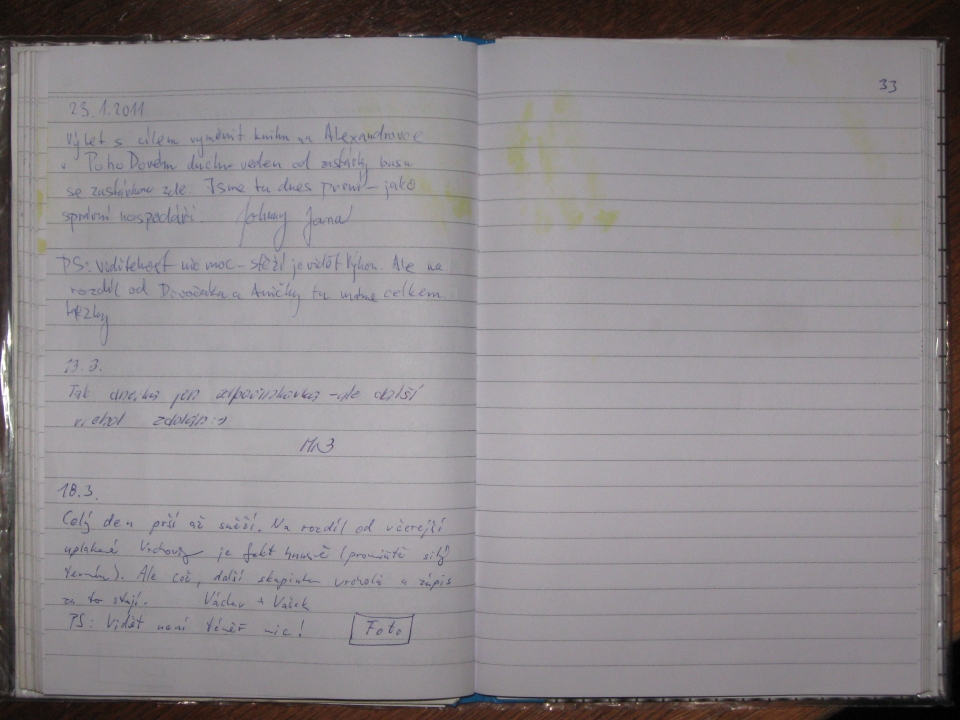 23.1.2011
Výlet s cílem vyměnit knihu na Alexandrovce
v PohoDovém duchu veden od zastávky busu
se zastávkou zde. Jsme tu dnes první - jako
správní hospodáři. Johny Jana
PS: Viditelnost nic moc - stěží je vidět Výhon. Ale na
rozdíl od Divočáka a Aničky tu máme celkem
hezky
13.3.
Tak dneska jen odpočinkovka - ale další
vrchol zdolán :-)
18.3.
Celý den prší až sněží. Na rozdíl od včerejší
uplakané Vrchoviny je fakt hnusně (promiňte silný
termín). Ale což, další skupinka vrcholů a zápis
za to stojí. Václav + Vašek
PS: Vidět není téměř nic!
Foto
33